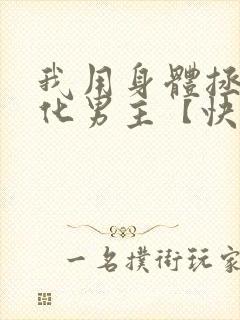 我用身體拯
化男主【快
一名撲街玩家